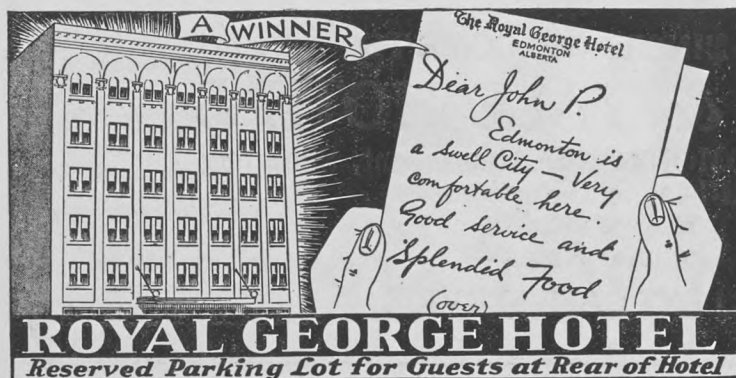 A WINNER
The Royal George Hotel
EDMONTON
ALBERTA
Dear John P.
Edmonton is
a swell City — Very
comfortable here.
Good service and
Splendid Food
(over)
ROYAL GEORGE HOTEL
Reserved Parking Lot for Guests at Rear of Hotel